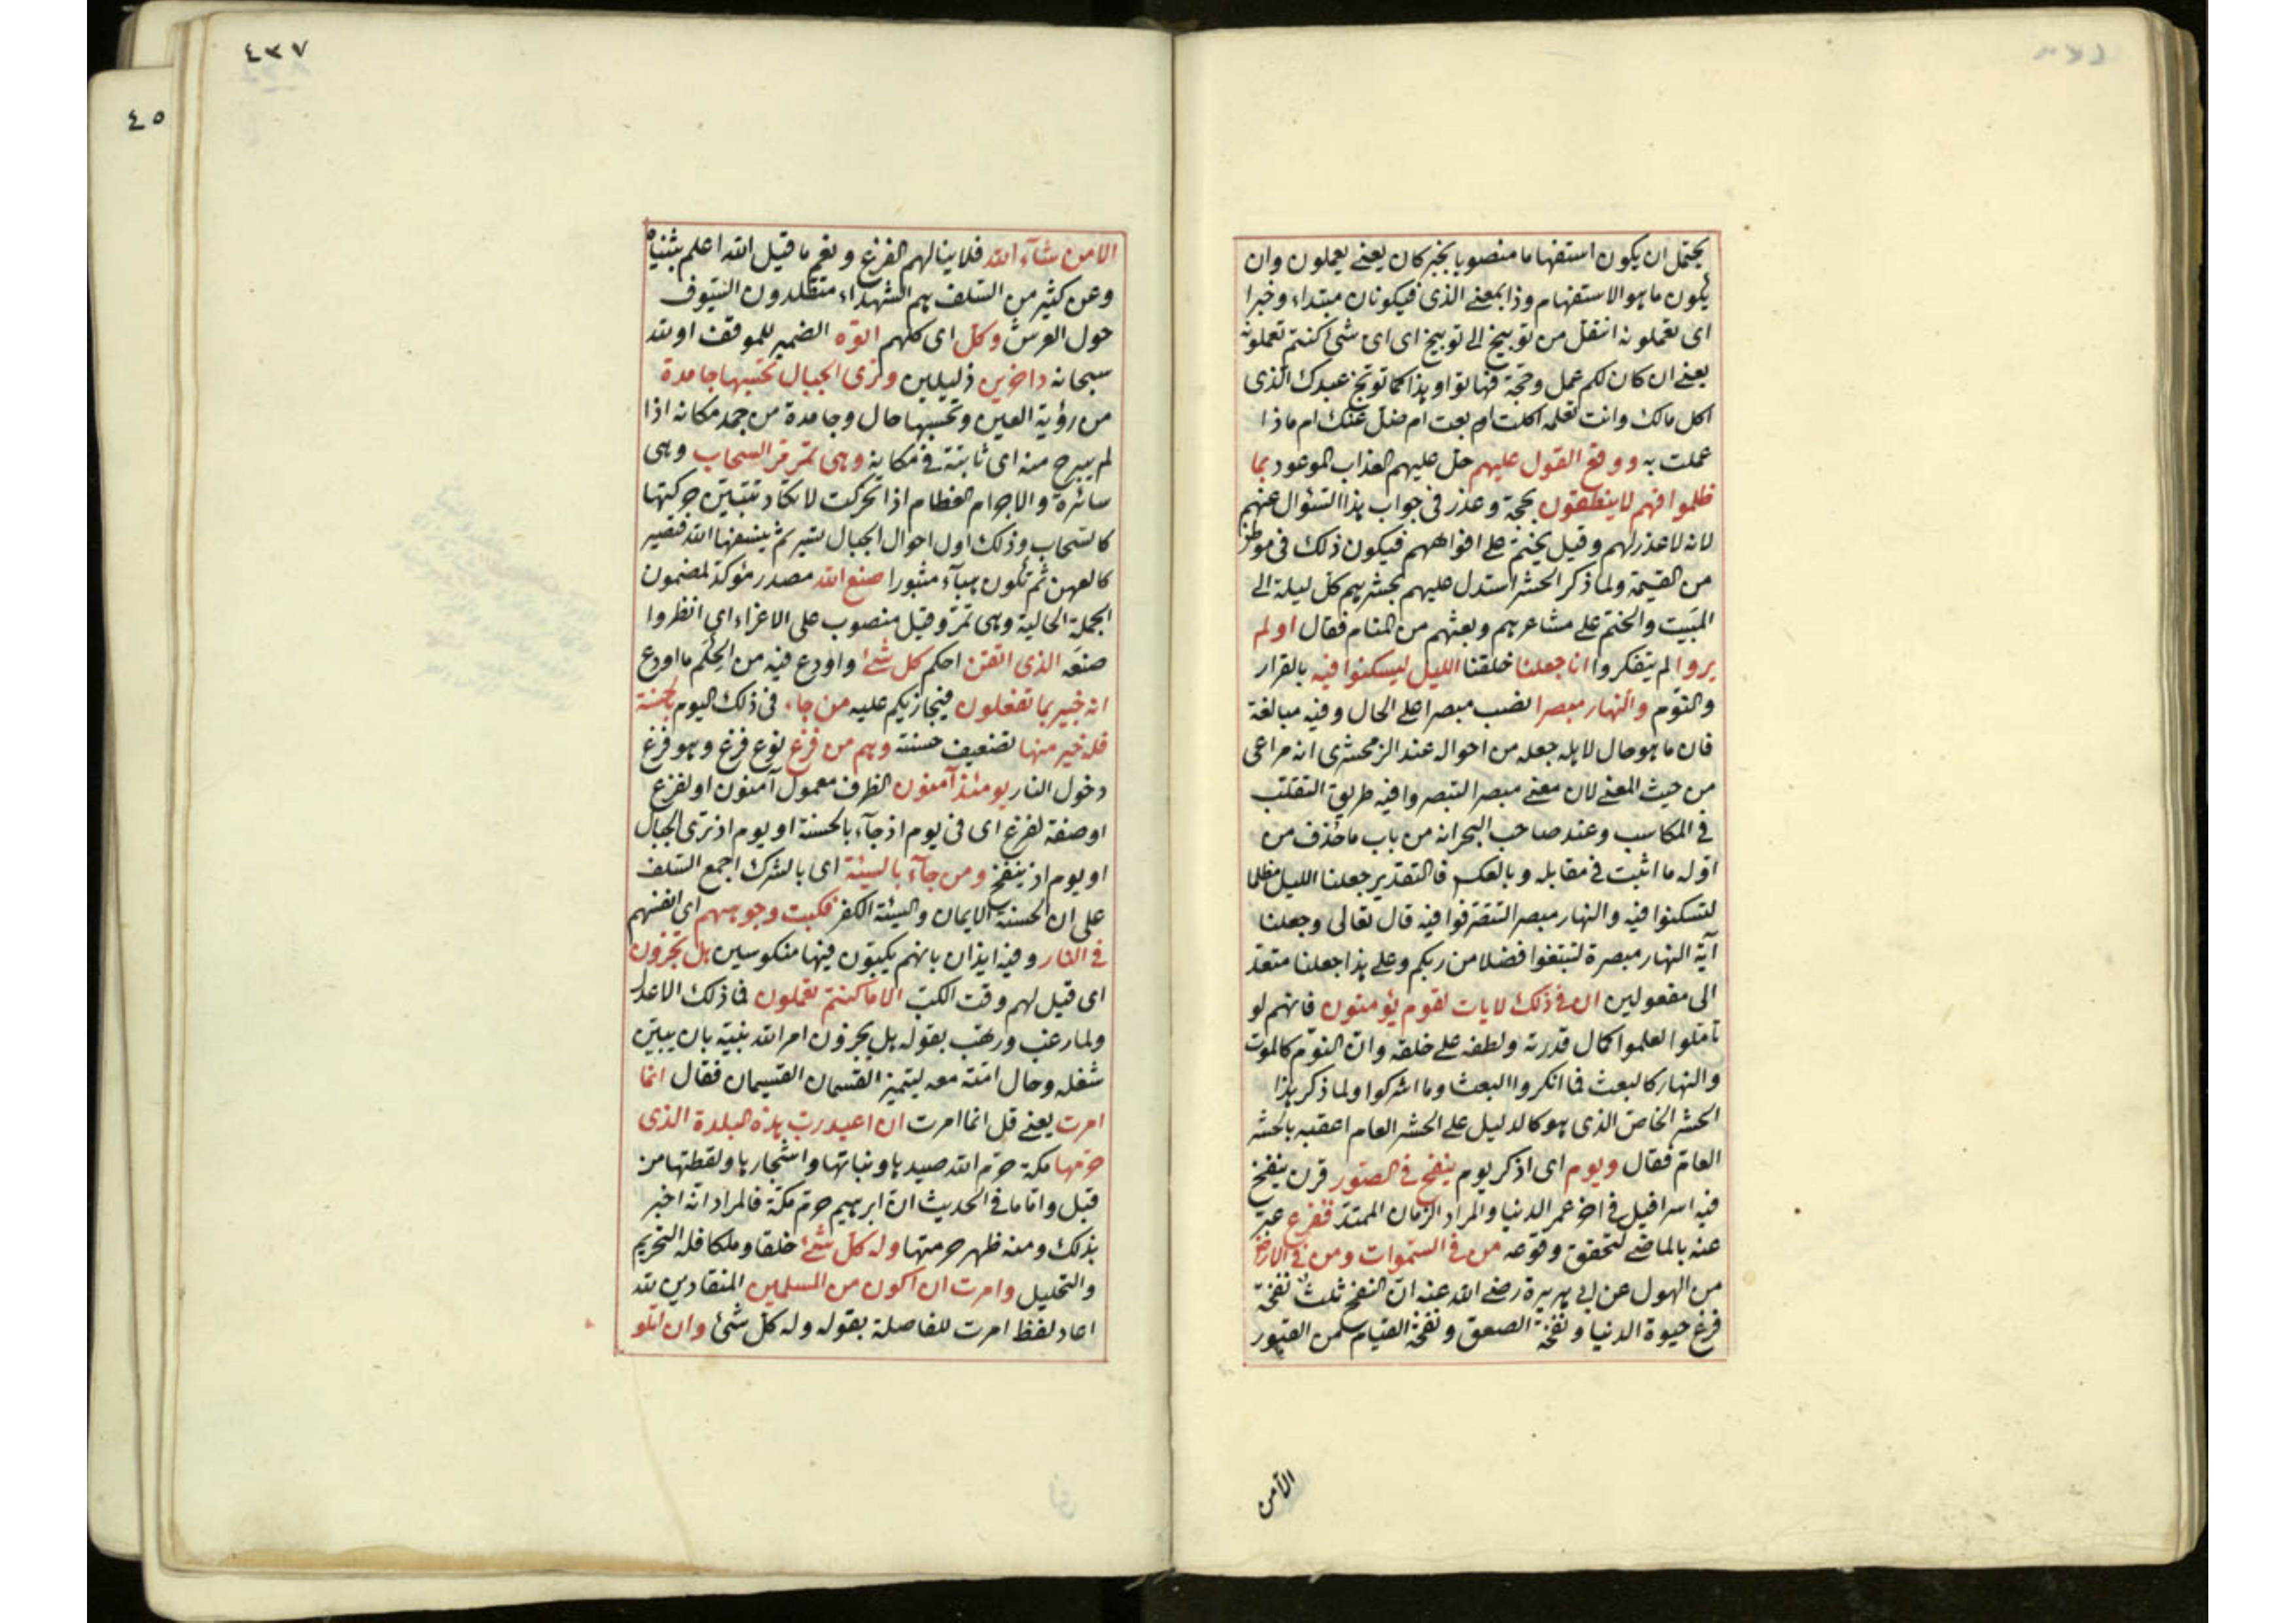 يحتمل ان يكون استفهاما منصوبا بخبر كان يعنى يعملون وان
يكون ما هو الاستفهام وذا بمعنى الذى فيكونان مبتداء وخبرا
اى تعملونه انتقل من توبيخ الى توبيخ اى اى شئ كنتم تعملونه
يعنى ان كان لكم عمل وحجة فهاتوا وهذا كما توبخ عبدك الذى
اكل مالك وانت تعلمه اكلت ام بعت ام ضل عنك ام ماذا
عملت به ووقع القول عليهم حل عليهم العذاب الموعود بما
ظلموا فهم لا ينطقون بحجة وعذر فى جواب هذا السئوال عنهم
لانه لا عذر لهم وقيل يختم على افواههم فيكون ذلك فى موطن
من القيمة ولما ذكر الحشر استدل عليهم بحشرهم كل ليلة الى
المبيت والختم على مشاعرهم وبعثهم من المنام فقال اولم
يروا الم يتفكروا انا جعلنا خلقنا الليل ليسكنوا فيه بالقرار
والنوم والنهار مبصرا نصب مبصرا على الحال وفيه مبالغة
فان ما هو حال لاهله جعله من احواله عند الزمخشرى انه مراعى
من حيث المعنى لان معنى مبصرا لتبصروا فيه طريق التقلب
فى المكاسب وعند صاحب البحر انه من باب ما حذف من
اوله ما اثبت فى مقابله وبالعكس فالتقدير جعلنا الليل مظلما
لتسكنوا فيه والنهار مبصرا لتتصرفوا فيه قال تعالى وجعلنا
آية النهار مبصرة لتبتغوا فضلا من ربكم وعلى هذا جعلنا متعد
الى مفعولين ان فى ذلك لايات لقوم يؤمنون فانهم لو
تاملوا لعلموا كمال قدرته ولطفه على خلقه وان النوم كالموت
والنهار كالبعث فما انكروا البعث وما اشركوا ولما ذكر هذا
الحشر الخاص الذى هو كالدليل على الحشر العام اعقبه بالحشر
العام فقال ويوم اى اذكر يوم ينفخ فى الصور قرن ينفخ
فيه اسرافيل فى اخر عمر الدنيا والمراد الزمان الممتد ففزع عبر
عنه بالماضى لتحقق وقوعه من فى السموات ومن فى الارض
من الهول عن ابى هريرة رضى الله عنه ان النفخ ثلث نفخة
فزع حيوة الدنيا ونفخة الصعق ونفخة القيام من القبور
الامن
٤٣٧
٤٥
الا من شآء الله فلا ينالهم الفزع ونعم ما قيل الله اعلم بثنياه
وعن كثير من السلف هم الشهداء متقلدون السيوف
حول العرش وكل اى كلهم اتوه الضمير للموقف او لله
سبحانه داخرين ذليلين وترى الجبال تحسبها جامدة
من رؤية العين وتحسبها حال وجامدة من جمد مكانه اذا
لم يبرح منه اى ثابتة فى مكانه وهى تمر مر السحاب وهى
سائرة والاجرام العظام اذا تحركت لا تكاد تتبين حركتها
كالسحاب وذلك اول احوال الجبال تسير ثم ينسفها الله فتصير
كالعهن ثم تكون هبآء منثورا صنع الله مصدر مؤكد لمضمون
الجملة الحالية وهى تمر وقيل منصوب على الاغراء اى انظروا
صنعه الذى اتقن احكم كل شئ واودع فيه من الحكم ما اودع
انه خبير بما تفعلون فيجازيكم عليه من جاء فى ذلك اليوم بالحسنة
فله خير منها تضعيف حسنته وهم من فزع نوع فزع وهو فزع
دخول النار يومئذ آمنون الظرف معمول آمنون او لفزع
او صفة لفزع اى فى يوم اذ جآء بالحسنة او يوم اذ ترى الجبال
او يوم اذ ينفخ ومن جآء بالسيئة اى بالشرك اجمع السلف
على ان الحسنة الايمان والسيئة الكفر فكبت وجوههم اى انفسهم
فى النار وفيه ايذان بانهم يكبون فيها منكوسين هل تجزون
اى قيل لهم وقت الكب الا ما كنتم تعملون فما ذلك الا عدل
ولما رغب ورهب بقوله هل يجزون امر الله نبيه بان يبين
شغله وحال امته معه ليتميز القسمان القسيمان فقال انما
امرت يعنى قل انما امرت ان اعبد رب هذه البلدة الذى
حرمها مكة حرم الله صيدها ونباتها واشجارها ولقطتها من
قبل واما ما فى الحديث ان ابرهيم حرم مكة فالمراد انه اخبر
بذلك ومنه ظهر حرمتها وله كل شئ خلقا وملكا فله التحريم
والتحليل وامرت ان اكون من المسلمين المنقادين لله
اعاد لفظ امرت للفاصلة بقوله وله كل شئ وان اتلو